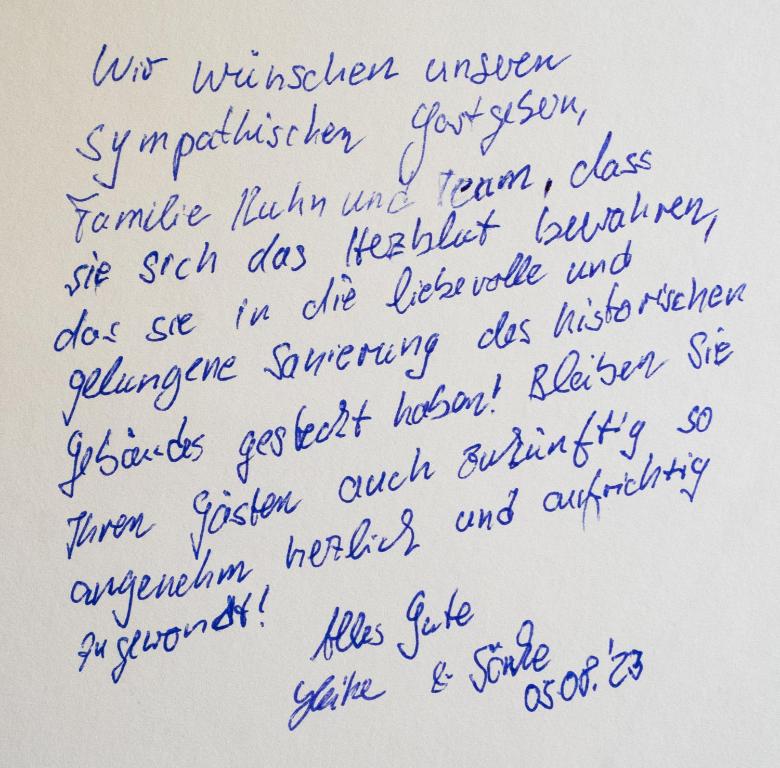 Wir wünschen unseren
sympathischen Gastgebern,
Familie Kuhn und Team, dass
sie sich das Herzblut bewahren,
das sie in die liebevolle und
gelungene Sanierung des historischen
Gebäudes gesteckt haben! Bleiben Sie
Ihren Gästen auch zukünftig so
angenehm herzlich und aufrichtig
zugewandt!
Alles Gute
& Sönke
05.08.'23